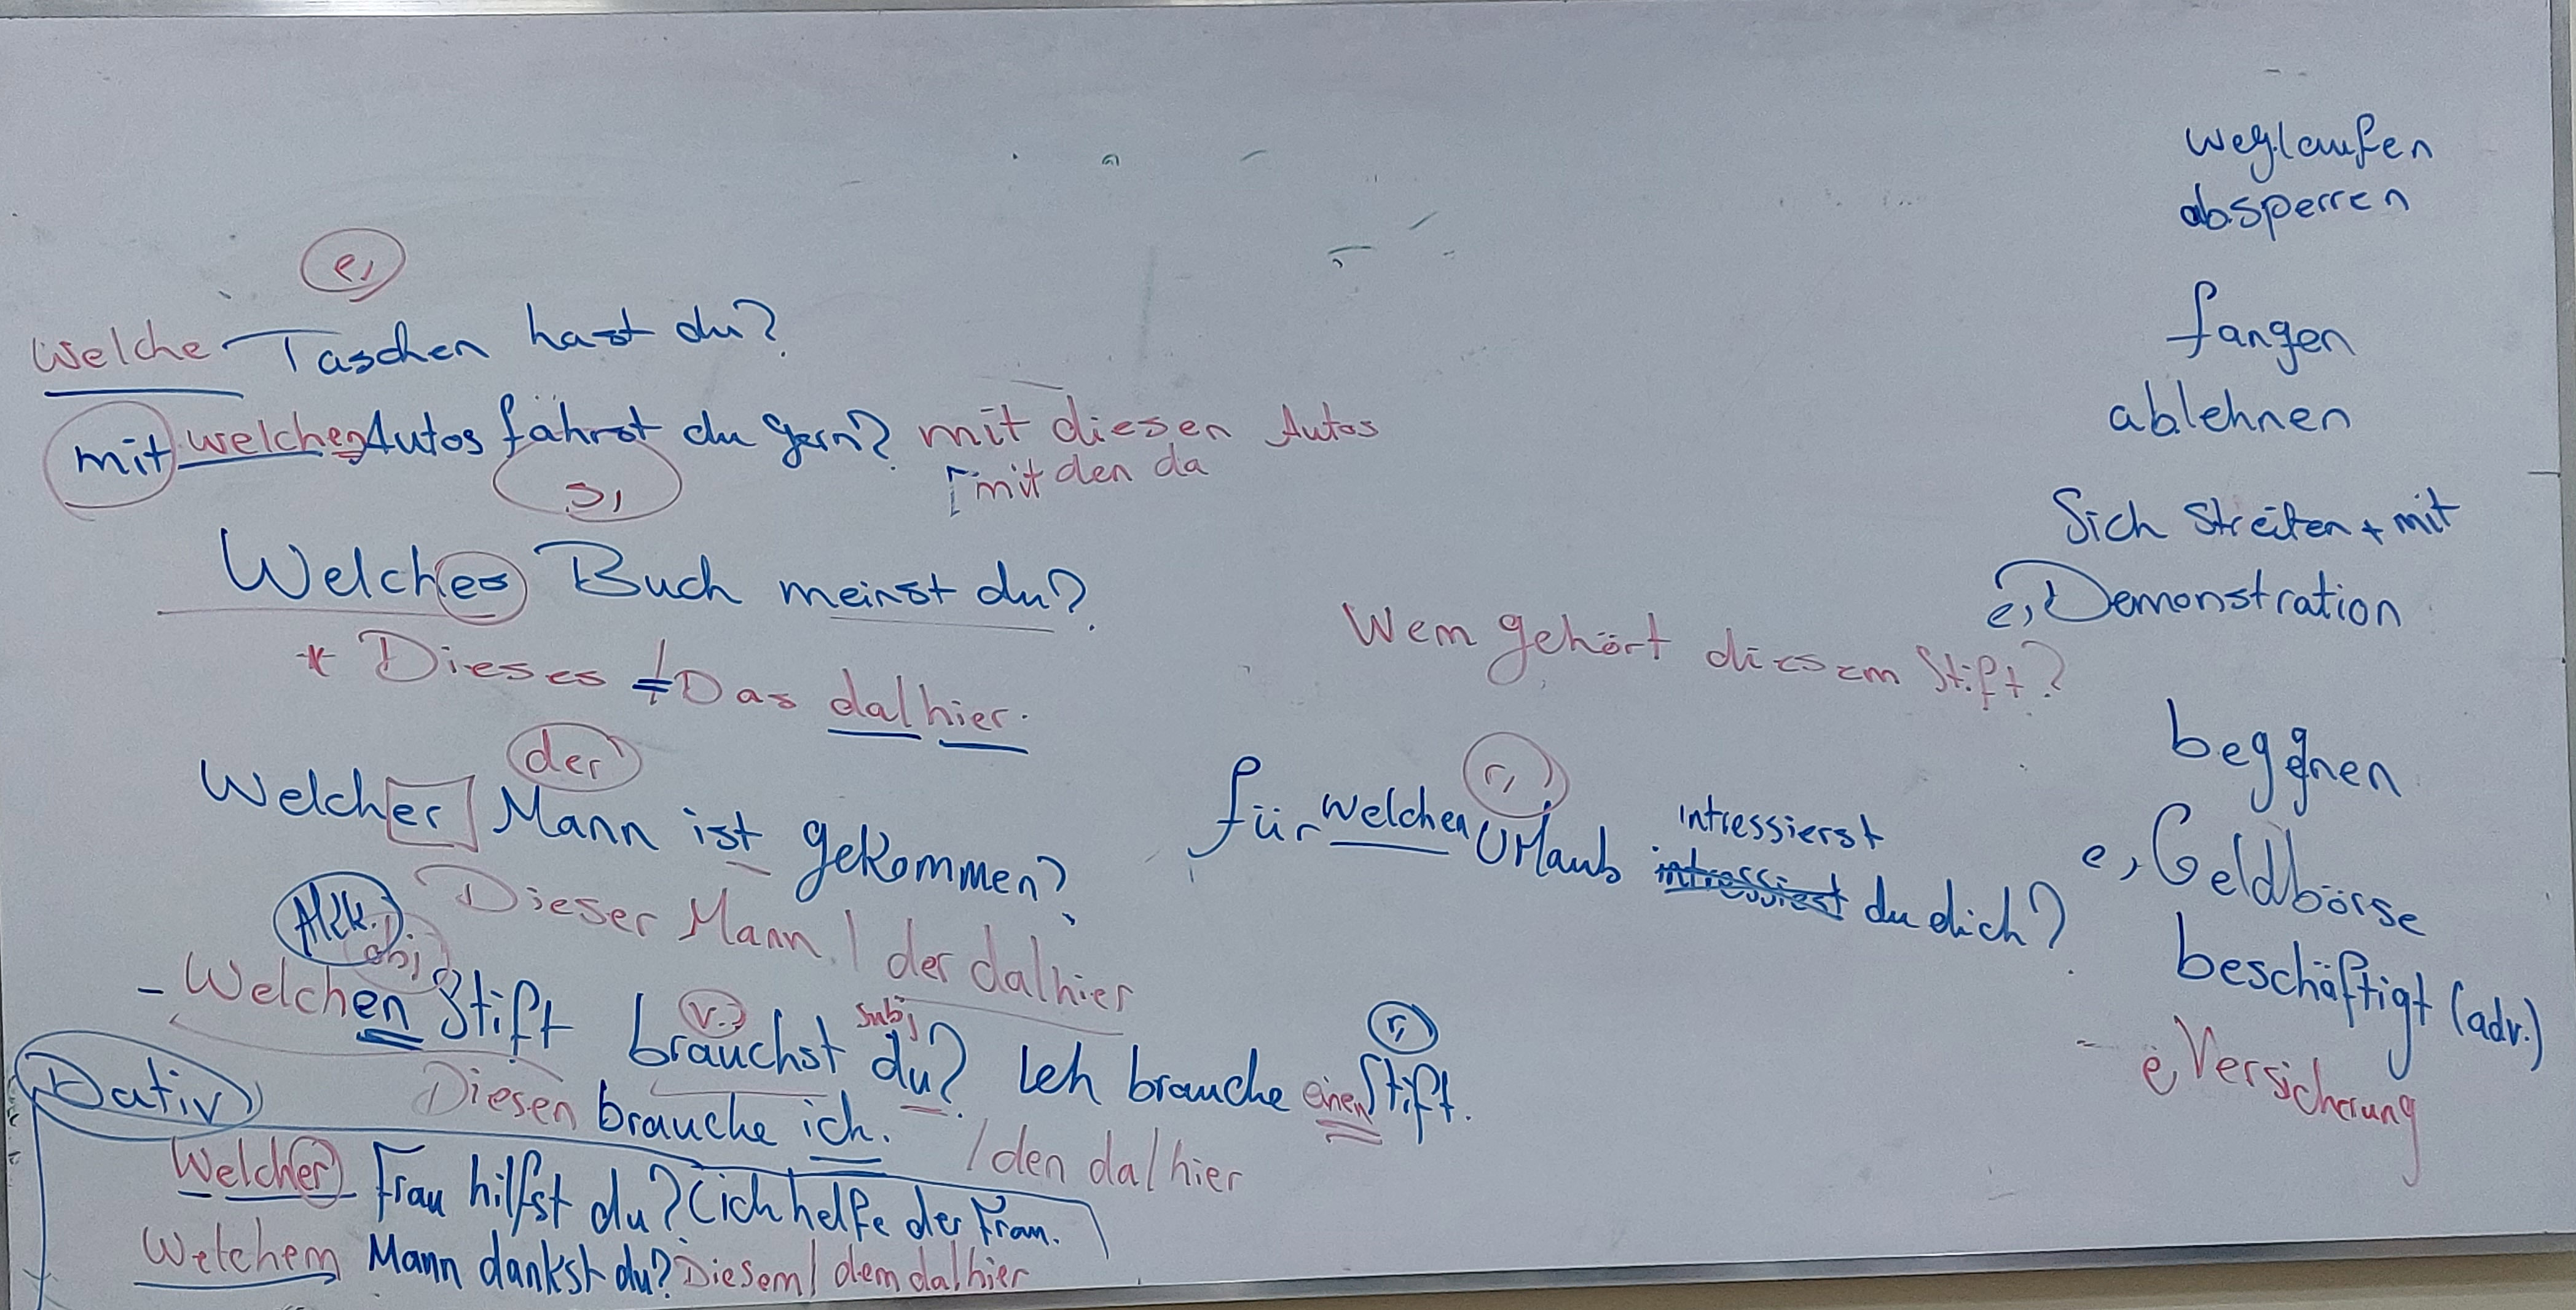 e,
Welche Taschen hast du?
mit welchen Autos fährst du gern? mit diesen Autos
s,
mit den da
Welches Buch meinst du?
* Dieses ≠ Das da/hier.
der
Welcher Mann ist gekommen?
Dieser Mann / der da/hier
Akk.
obj
- Welchen Stift brauchst du? Ich brauche einen Stift.
v.
subj
r,
Diesen brauche ich. / den da/hier
Dativ
Welcher Frau hilfst du? (ich helfe der Frau.
Welchem Mann dankst du? Diesem / dem da/hier
Wem gehört diesem Stift?
r,
für welchen Urlaub intressierst du dich?
intressiest
weglaufen
absperren
fangen
ablehnen
Sich streiten + mit
e, Demonstration
begegnen
e, Geldbörse
beschäftigt (adv.)
- e, Versicherung